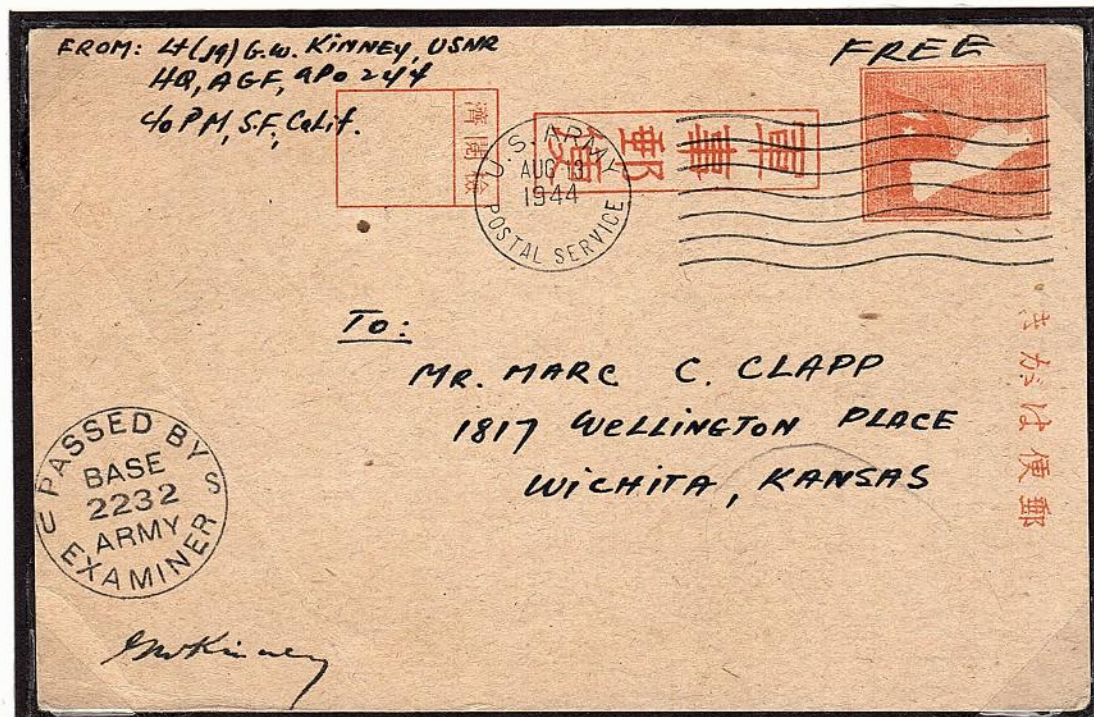 FROM: Lt(jg) G.W. KINNEY, USNR
HQ, AGF, APO 244
c/o PM, S.F., Calif.
FREE
檢閲濟
軍事郵便
U.S. ARMY
AUG 13
1944
POSTAL SERVICE
To:
MR. MARC C. CLAPP
1817 WELLINGTON PLACE
WICHITA, KANSAS
郵便はがき
PASSED BY
BASE
2232
ARMY
U S
EXAMINER
GWKinney